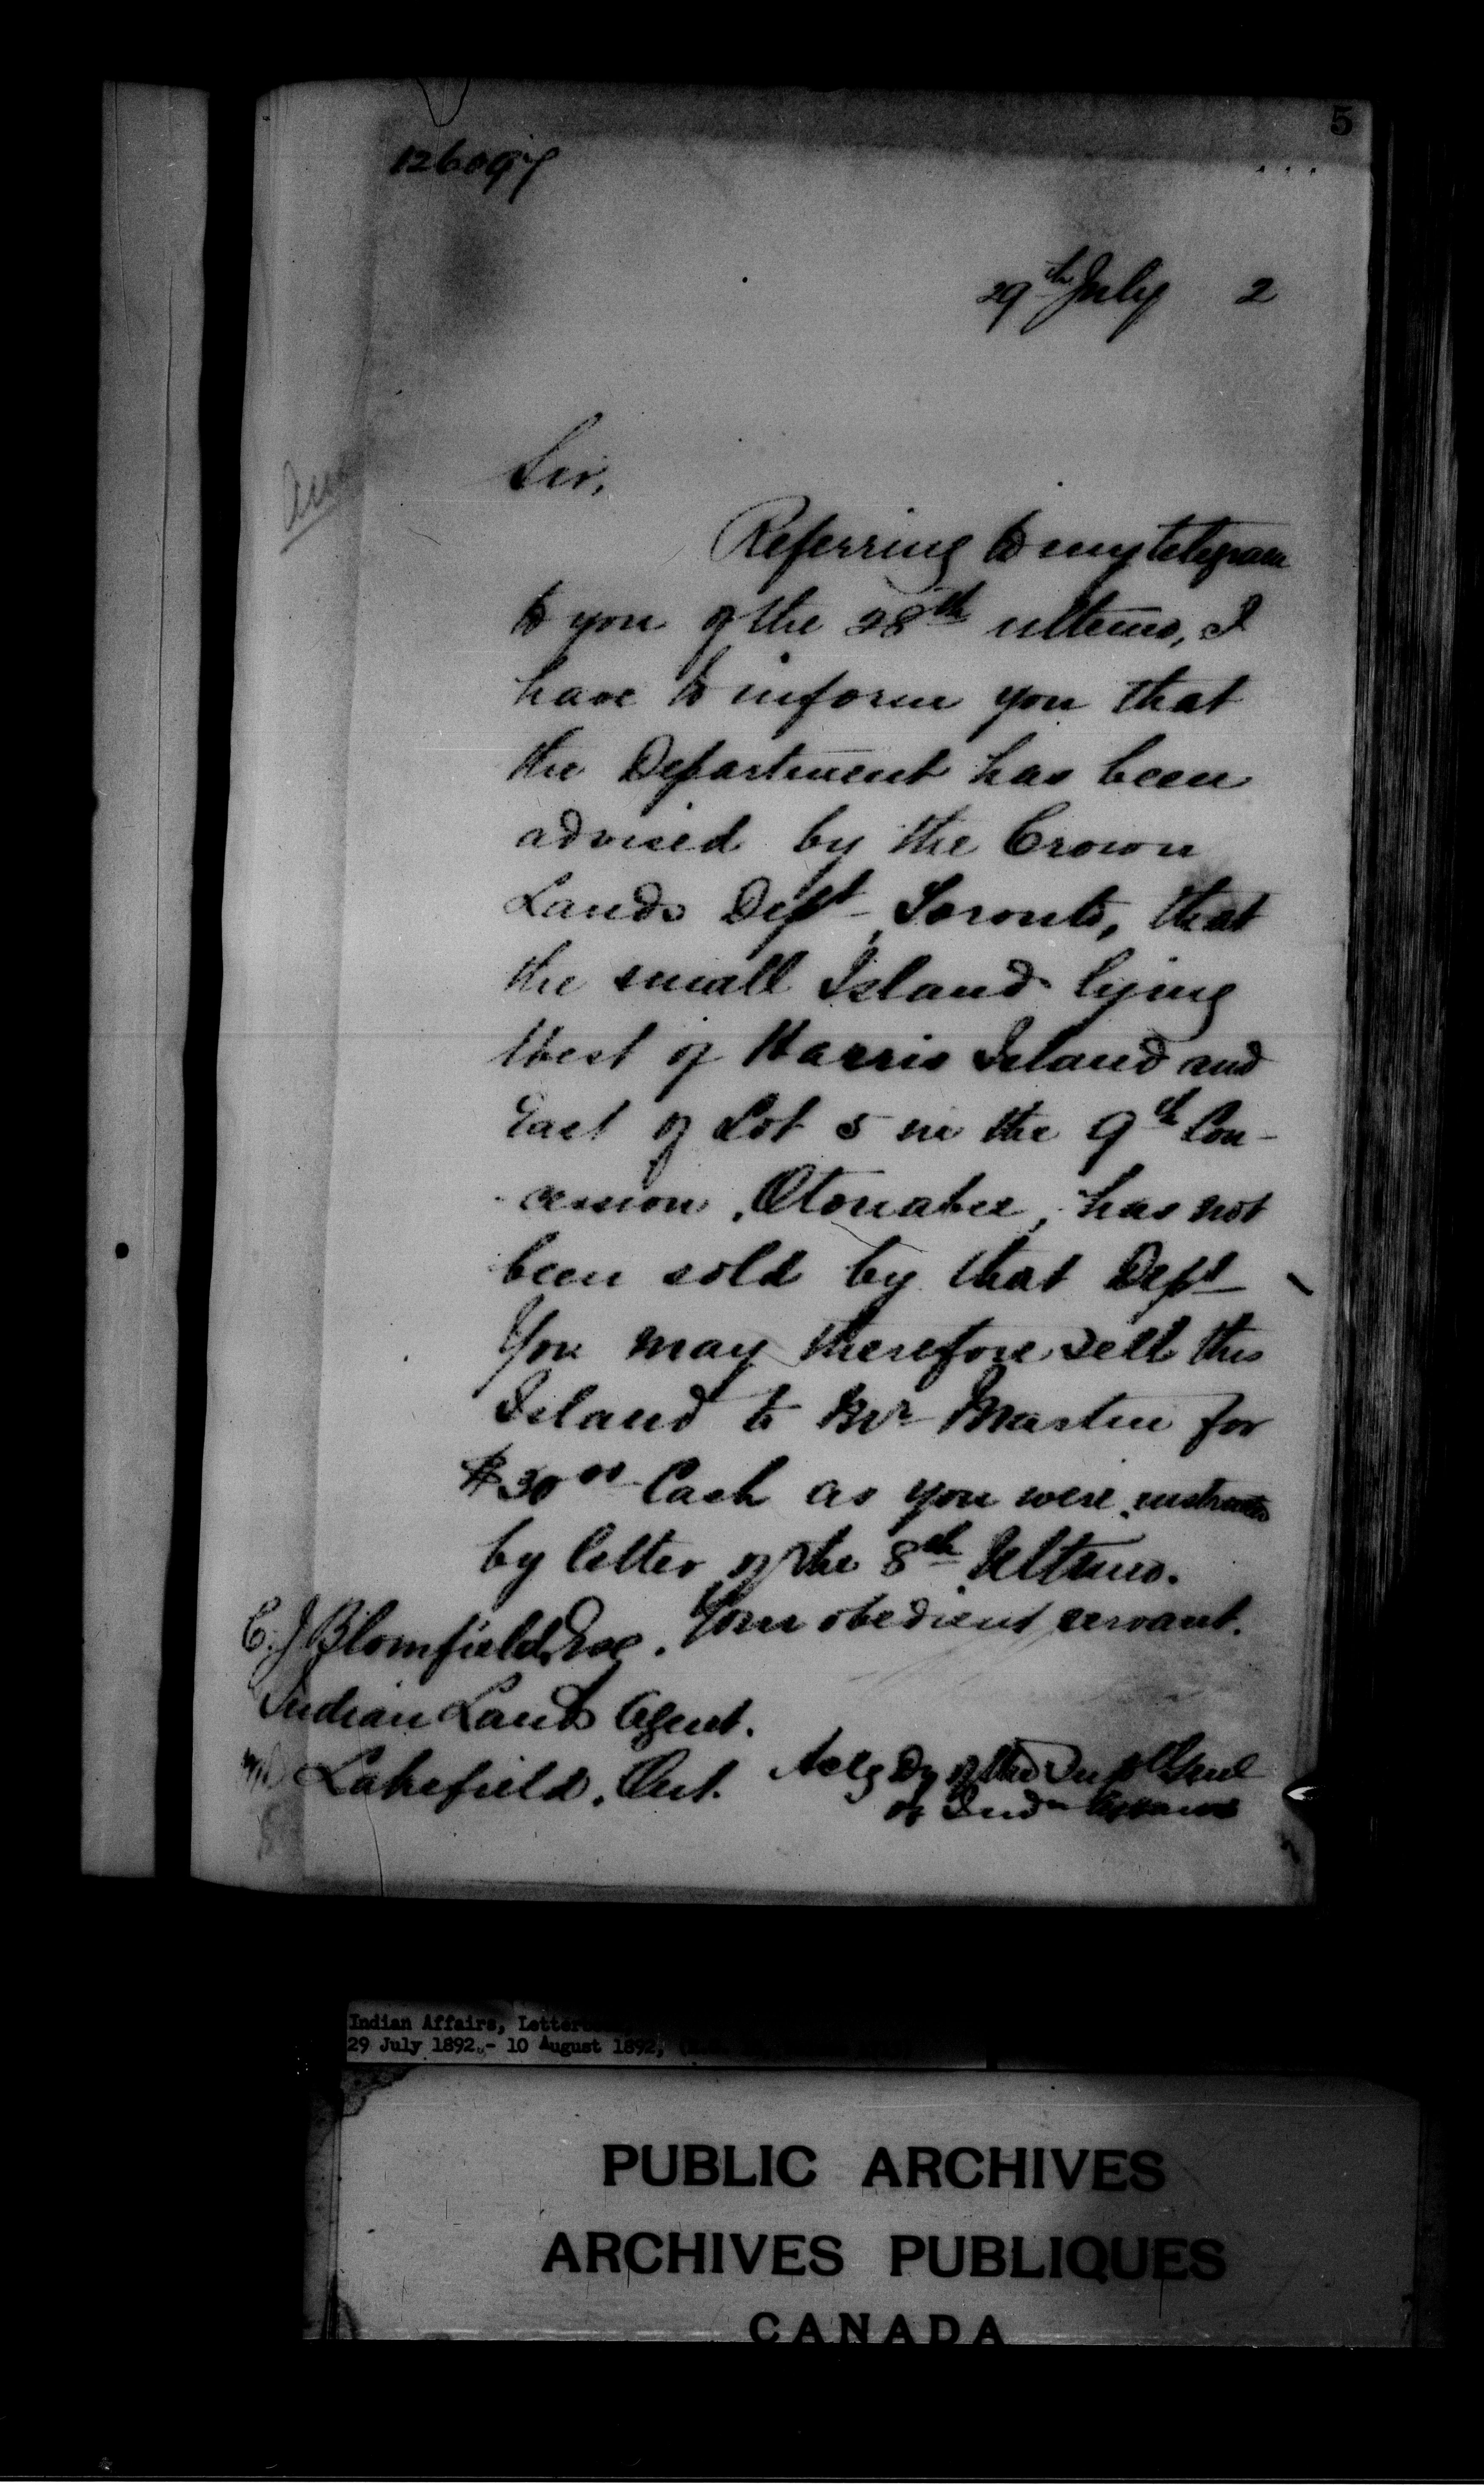 5
126097
29th July 2
Sir,
Referring to my telegram
to you of the 28th ultimo, I
have to inform you that
the Department has been
advised by the Crown
Lands Dept, Toronto, that
the small Island lying
West of Harris Island and
East of Lot 5 in the 9th Con-
cession, Otonabee, has not
been sold by that Dept
You may therefore sell this
Island to Mr Martin for
$30.00 Cash as you were instructed
by letter of the 8th Ultimo.
Your obedient servant.
C. J Blomfield, Esq.
Indian Lands Agent.
Lakefield, Ont.
Actg Dy of the Supt Genl
of Indn Affairs
Indian Affairs,
29 July 1892 - 10 August 1892,
PUBLIC ARCHIVES
ARCHIVES PUBLIQUES
CANADA